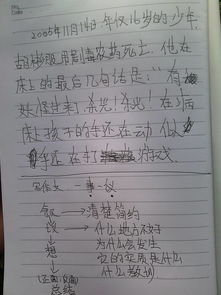 2005年11月14日 年仅16岁的少年
胡彬服用剧毒农药死亡，他在
床上的最后几句话是："有
妖怪过来了，杀光！杀光！在病
床上孩子的手还在动 似
乎还在打 游戏
写作文 一事一议
叙 → 清楚简约
议 → 什么地方不好
为什么会发生
↓ 它的实质是什么
想 → 什么教训
↓
(正面，反面)
总结